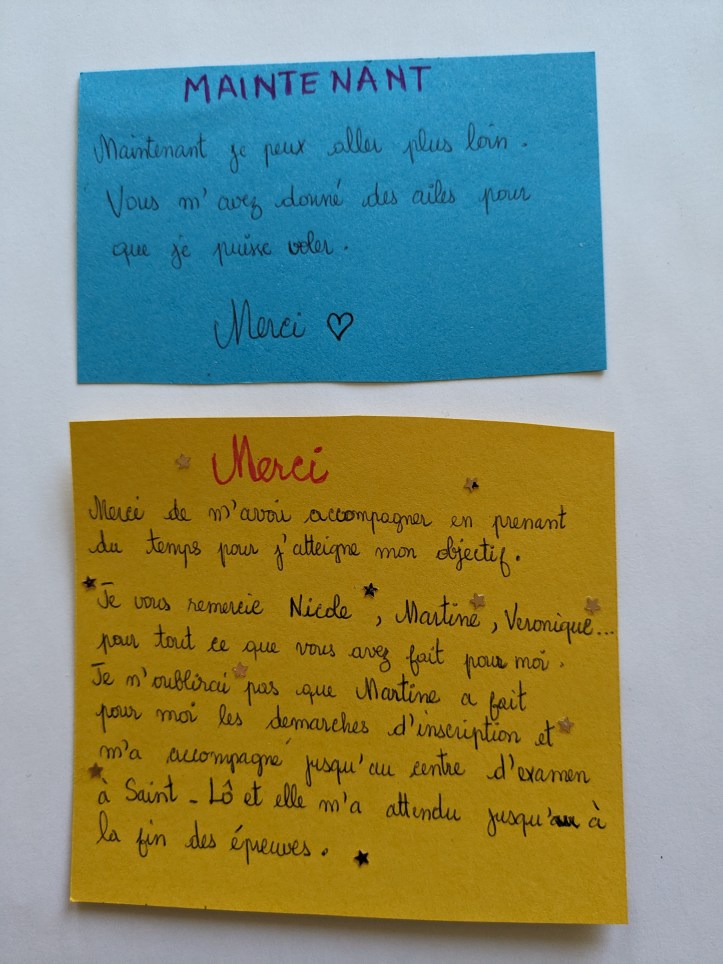 MAINTENANT
Maintenant je peux aller plus loin.
Vous m'avez donné des ailes pour
que je puisse voler.
Merci ♡
Merci
Merci de m'avoir accompagner en prenant
du temps pour j'atteigne mon objectif.
Je vous remercie Nicole, Martine, Veronique...
pour tout ce que vous avez fait pour moi.
Je n'oublirai pas que Martine a fait
pour moi les demarches d'inscription et
m'a accompagné jusqu'au centre d'examen
à Saint-Lô et elle m'a attendu jusqu'à
la fin des épreuves.